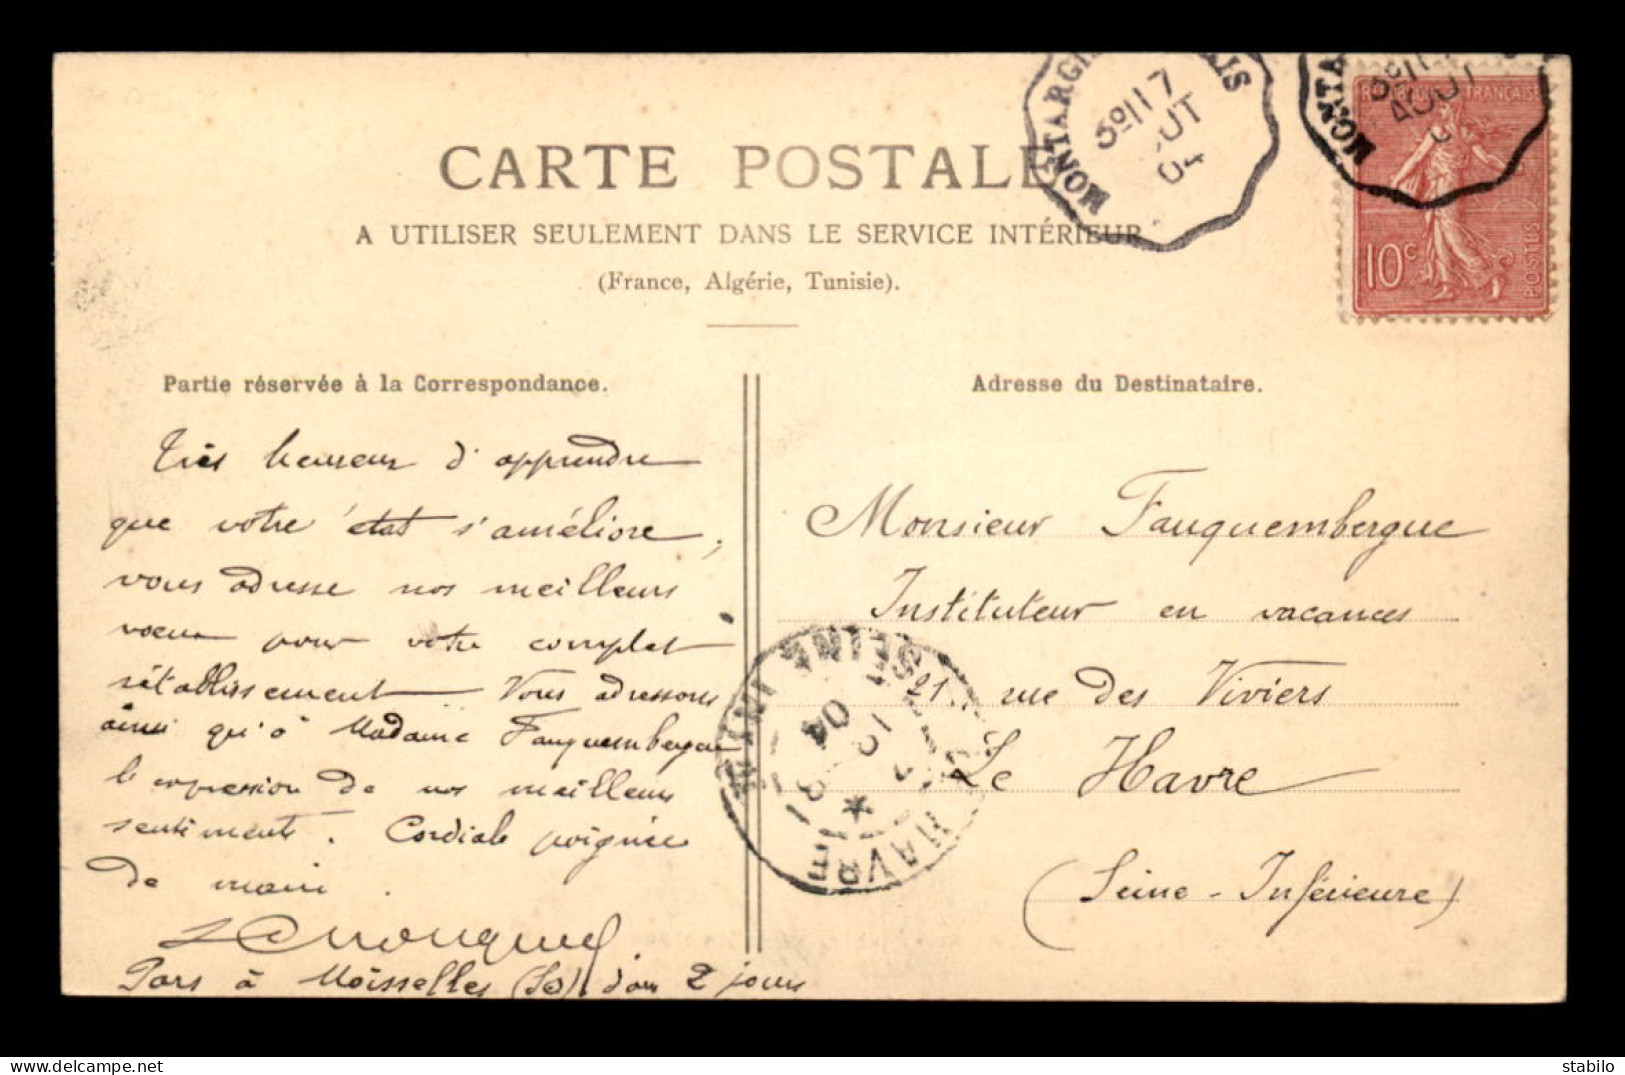 CARTE POSTALE
A UTILISER SEULEMENT DANS LE SERVICE INTÉRIEUR
(France, Algérie, Tunisie).
MONTARGI
3º 17
OUT
04
MONTA
3º 1
AOUT
REPUBLIQUE FRANÇAISE
10c
POSTES
Partie réservée à la Correspondance.
Très heureux d'apprendre
que votre état s'améliore,
vous adresse nos meilleurs
voeux pour votre complet
rétablissement. Vous adressons
ainsi qu'à Madame Fauquembergue
l'expression de nos meilleurs
sentiments. Cordiale poignée
de main.
Pars à Moisselles (So) dans 2 jours
Adresse du Destinataire.
Monsieur Fauquembergue
Instituteur en vacances
21, rue des Viviers
Le Havre
(Seine-Inférieure)
LE HAVRE
SEINE INFRE
04
delcampe.net
stabilo